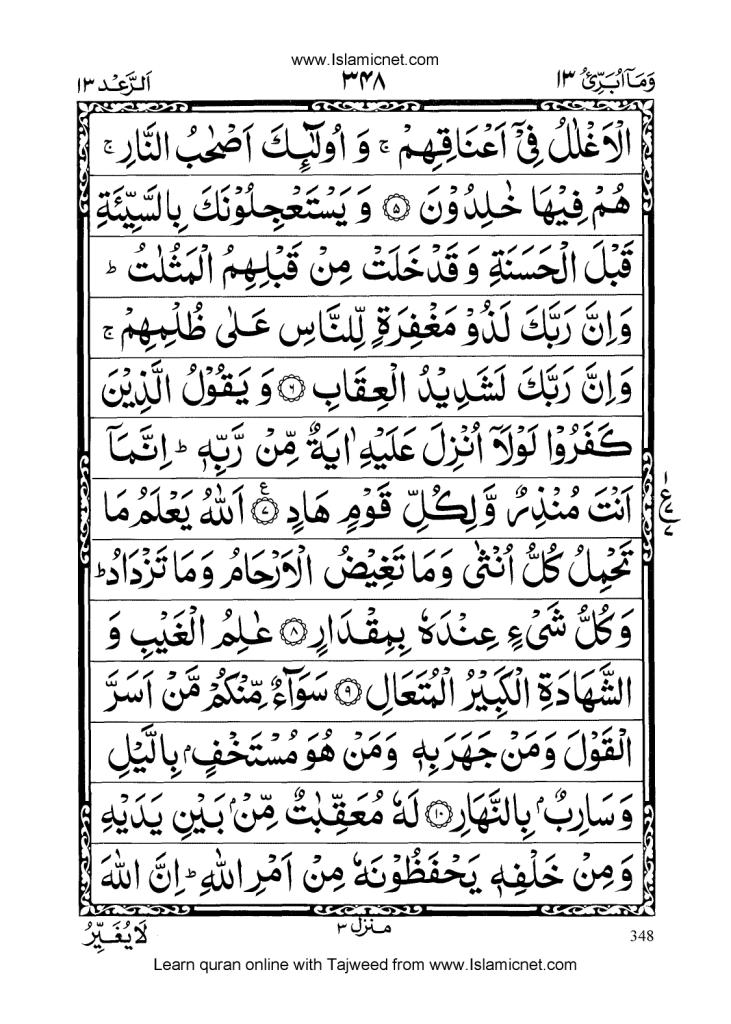 www.Islamicnet.com
وَمَآ اُبَرِّئُ ١٣ ٣٤٨ اَلرَّعْد ١٣
الْاَغْلٰلُ فِیْۤ اَعْنَاقِهِمْ ۚ وَ اُولٰٓئِكَ اَصْحٰبُ النَّارِ ۚ
هُمْ فِیْهَا خٰلِدُوْنَ ۝۵ وَ یَسْتَعْجِلُوْنَكَ بِالسَّیِّئَةِ
قَبْلَ الْحَسَنَةِ وَ قَدْ خَلَتْ مِنْ قَبْلِهِمُ الْمَثُلٰتُ ؕ
وَاِنَّ رَبَّكَ لَذُوْ مَغْفِرَةٍ لِّلنَّاسِ عَلٰی ظُلْمِهِمْ ۚ
وَاِنَّ رَبَّكَ لَشَدِیْدُ الْعِقَابِ ۝۶ وَ یَقُوْلُ الَّذِیْنَ
كَفَرُوْا لَوْلَاۤ اُنْزِلَ عَلَیْهِ اٰیَةٌ مِّنْ رَّبِّهٖ ؕ اِنَّمَاۤ
اَنْتَ مُنْذِرٌ وَّلِكُلِّ قَوْمٍ هَادٍ ۝۷ع اَللّٰهُ یَعْلَمُ مَا
تَحْمِلُ كُلُّ اُنْثٰی وَمَا تَغِیْضُ الْاَرْحَامُ وَمَا تَزْدَادُ ؕ
وَكُلُّ شَیْءٍ عِنْدَهٗ بِمِقْدَارٍ ۝۸ عٰلِمُ الْغَیْبِ وَ
الشَّهَادَةِ الْكَبِیْرُ الْمُتَعَالِ ۝۹ سَوَآءٌ مِّنْكُمْ مَّنْ اَسَرَّ
الْقَوْلَ وَمَنْ جَهَرَ بِهٖ وَمَنْ هُوَ مُسْتَخْفٍۭ بِالَّیْلِ
وَسَارِبٌۢ بِالنَّهَارِ ۝۱۰ لَهٗ مُعَقِّبٰتٌ مِّنْۢ بَیْنِ یَدَیْهِ
وَمِنْ خَلْفِهٖ یَحْفَظُوْنَهٗ مِنْ اَمْرِ اللّٰهِ ؕ اِنَّ اللّٰهَ
منزل ٣
لَا یُغَیِّرُ
348
Learn quran online with Tajweed from www.Islamicnet.com